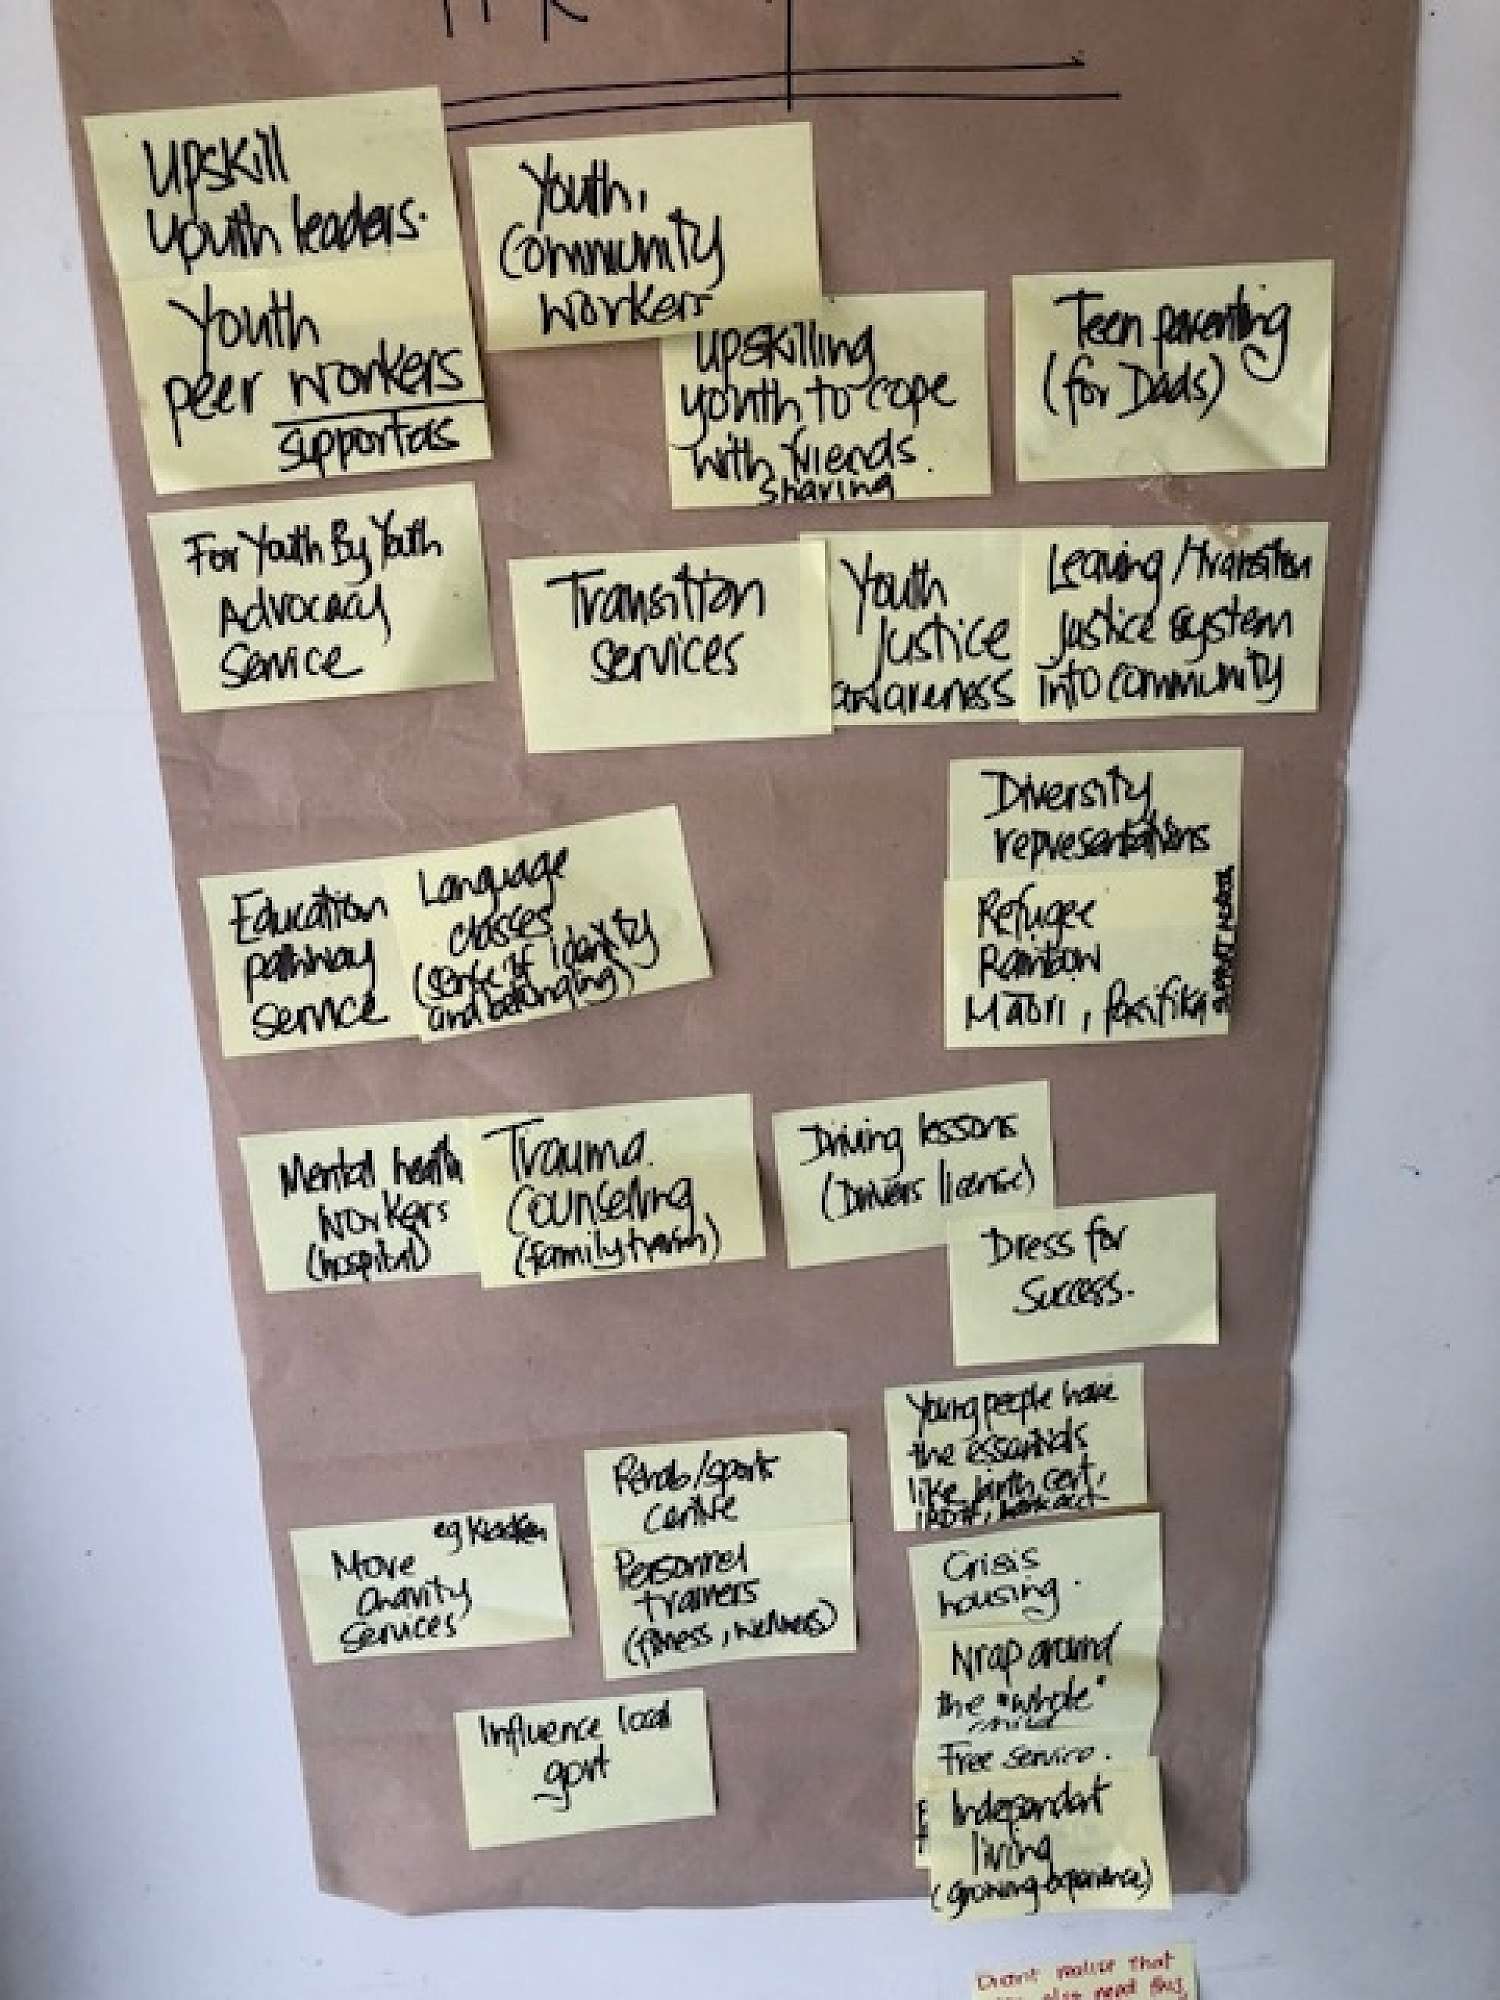 Upskill
Youth leaders.
Youth
peer workers
supportas
Youth,
Community
workers
Upskilling
youth to cope
with friends.
sharing
Teen parenting
(for Dads)
For Youth By Youth
Advocacy
Service
Transition
services
Youth
Justice
awareness
Leaving/transition
justice system
into community
Diversity
representations
Refugee
Rainbow
Māori, Pasifika
Education
pathway
service
Language
classes
(sense of identity
and belonging)
Mental health
workers
(hospital)
Trauma
Counselling
(family harm)
Driving lessons
(Drivers license)
Dress for
Success.
Young people have
the essentials
like birth cert,
Rehab/sports
centre
Personnel
trainers
(fitness, wellness)
eg
Move
Charity
services
Crisis
housing.
Wrap around
the "whole"
child
Free service.
Independant
living
(growing experience)
Influence local
govt
realise that
also need this